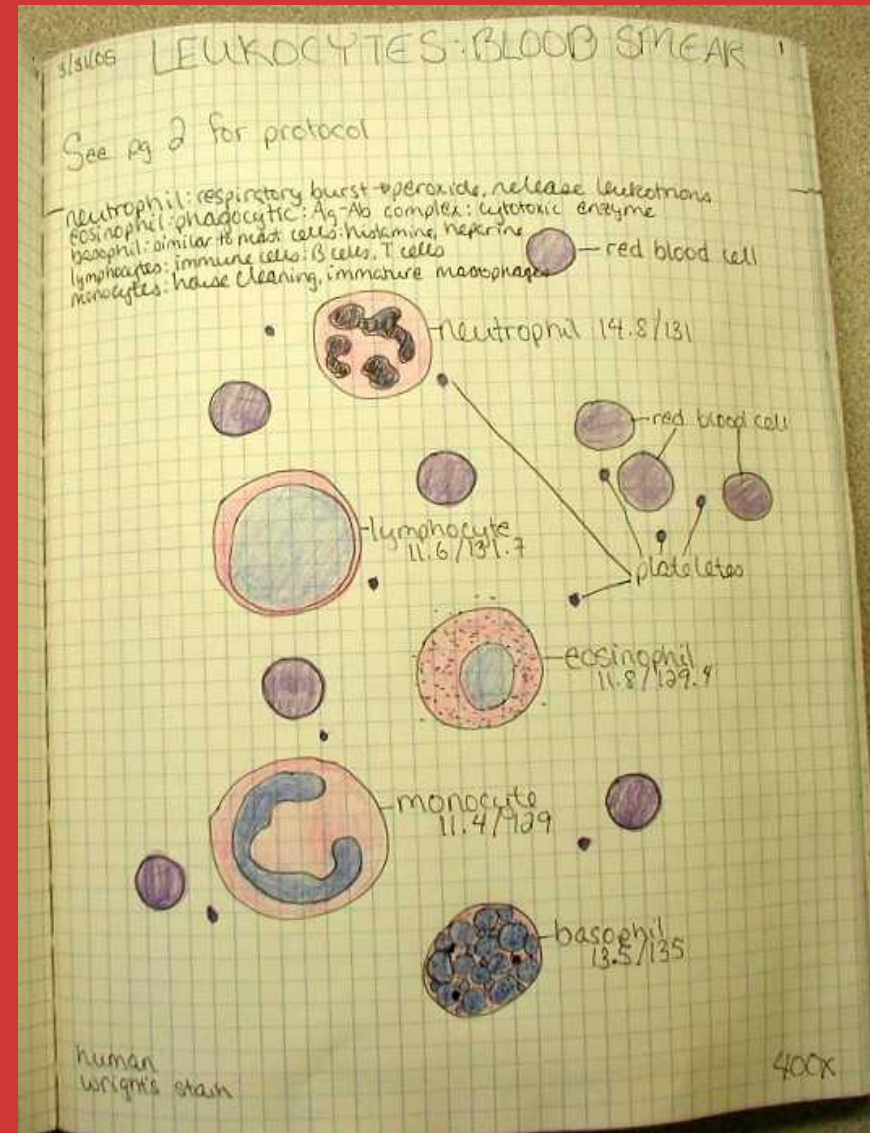 3/31/05 LEUKOCYTES: BLOOD SMEAR 1
See pg 2 for protocol
neutrophil: respiratory burst → peroxide, release leukotrions
eosinophil: phagocytic: Ag-Ab complex: cytotoxic enzyme
basophil: similar to mast cells: histamine, heperine
lymphocytes: immune cells: B cells, T cells
monocytes: house cleaning, immature macrophages
red blood cell
neutrophil 14.8/131
red blood cell
lymphocyte
11.6/131.7
plateletes
eosinophil
11.8/129.4
monocyte
11.4/129
basophil
13.5/135
human
wright's stain
400x